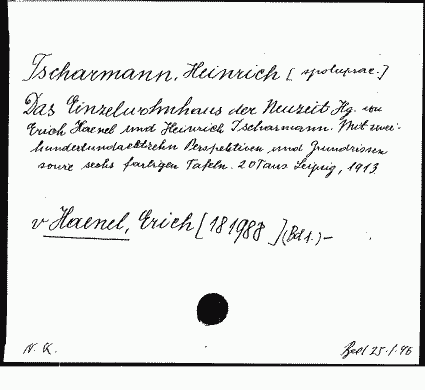 Tscharmann, Heinrich [spoluprac.]
Das Einzelwohnhaus der Neuzeit Hg. von
Erich Haenel und Heinrich Tscharmann. Mit zwei-
hundertundachtzehn Perspektiven und Grundrissen
sowie sechs farbigen Tafeln. 20 Taus Leipzig, 1913
v Haenel, Erich [181988] (Bd 1.) –
N. K.
25.1.46